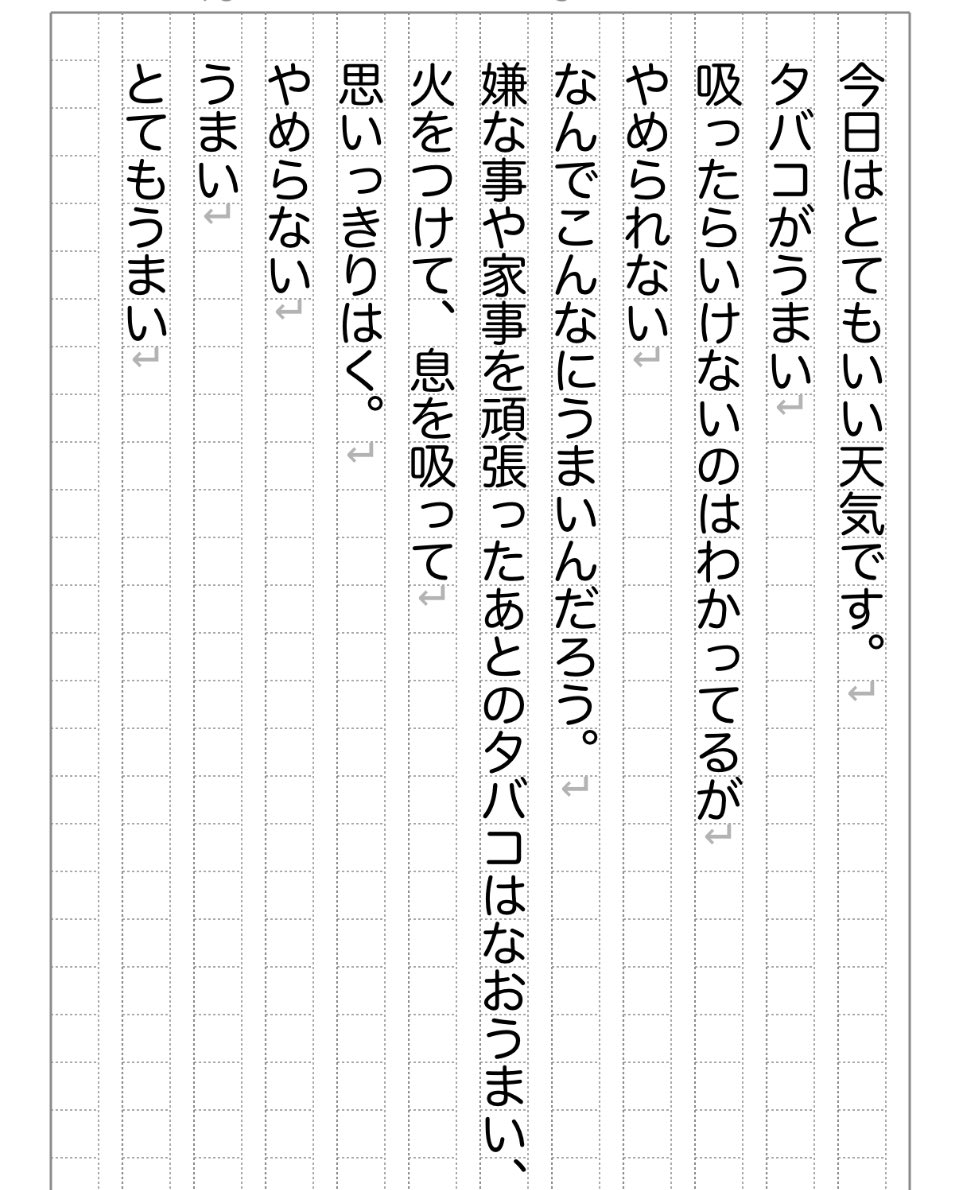 今日はとてもいい天気です。
タバコがうまい
吸ったらいけないのはわかってるが
やめられない
なんでこんなにうまいんだろう。
嫌な事や家事を頑張ったあとのタバコはなおうまい、
火をつけて、息を吸って
思いっきりはく。
やめらない
うまい
とてもうまい